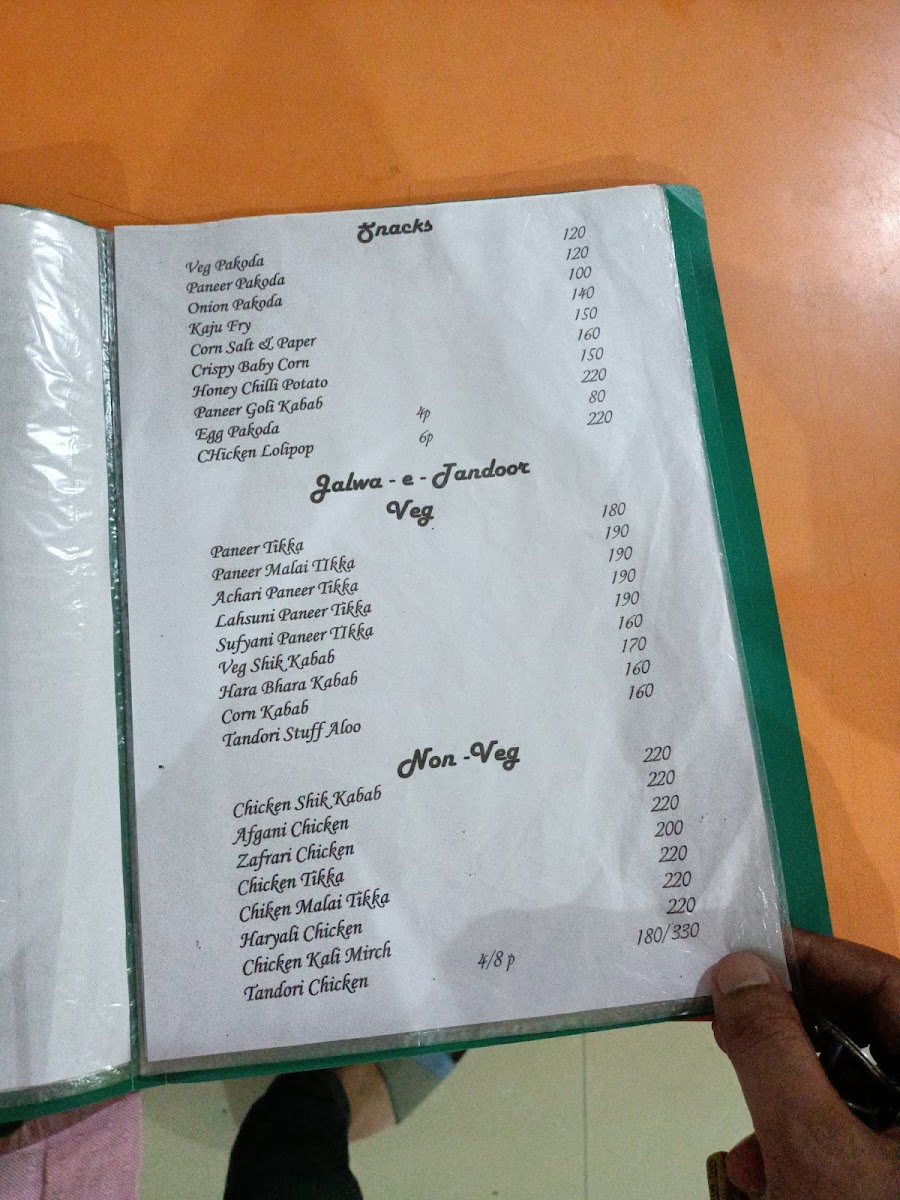 Snacks
Veg Pakoda 120
Paneer Pakoda 120
Onion Pakoda 100
Kaju Fry 140
Corn Salt & Paper 150
Crispy Baby Corn 160
Honey Chilli Potato 150
Paneer Goli Kabab 220
Egg Pakoda 4p 80
CHicken Lolipop 6p 220
Jalwa - e - Tandoor
Veg
Paneer Tikka 180
Paneer Malai TIkka 190
Achari Paneer Tikka 190
Lahsuni Paneer Tikka 190
Sufyani Paneer TIkka 190
Veg Shik Kabab 160
Hara Bhara Kabab 170
Corn Kabab 160
Tandori Stuff Aloo 160
Non -Veg
Chicken Shik Kabab 220
Afgani Chicken 220
Zafrari Chicken 220
Chicken Tikka 200
Chiken Malai Tikka 220
Haryali Chicken 220
Chicken Kali Mirch 220
Tandori Chicken 4/8 p 180/330